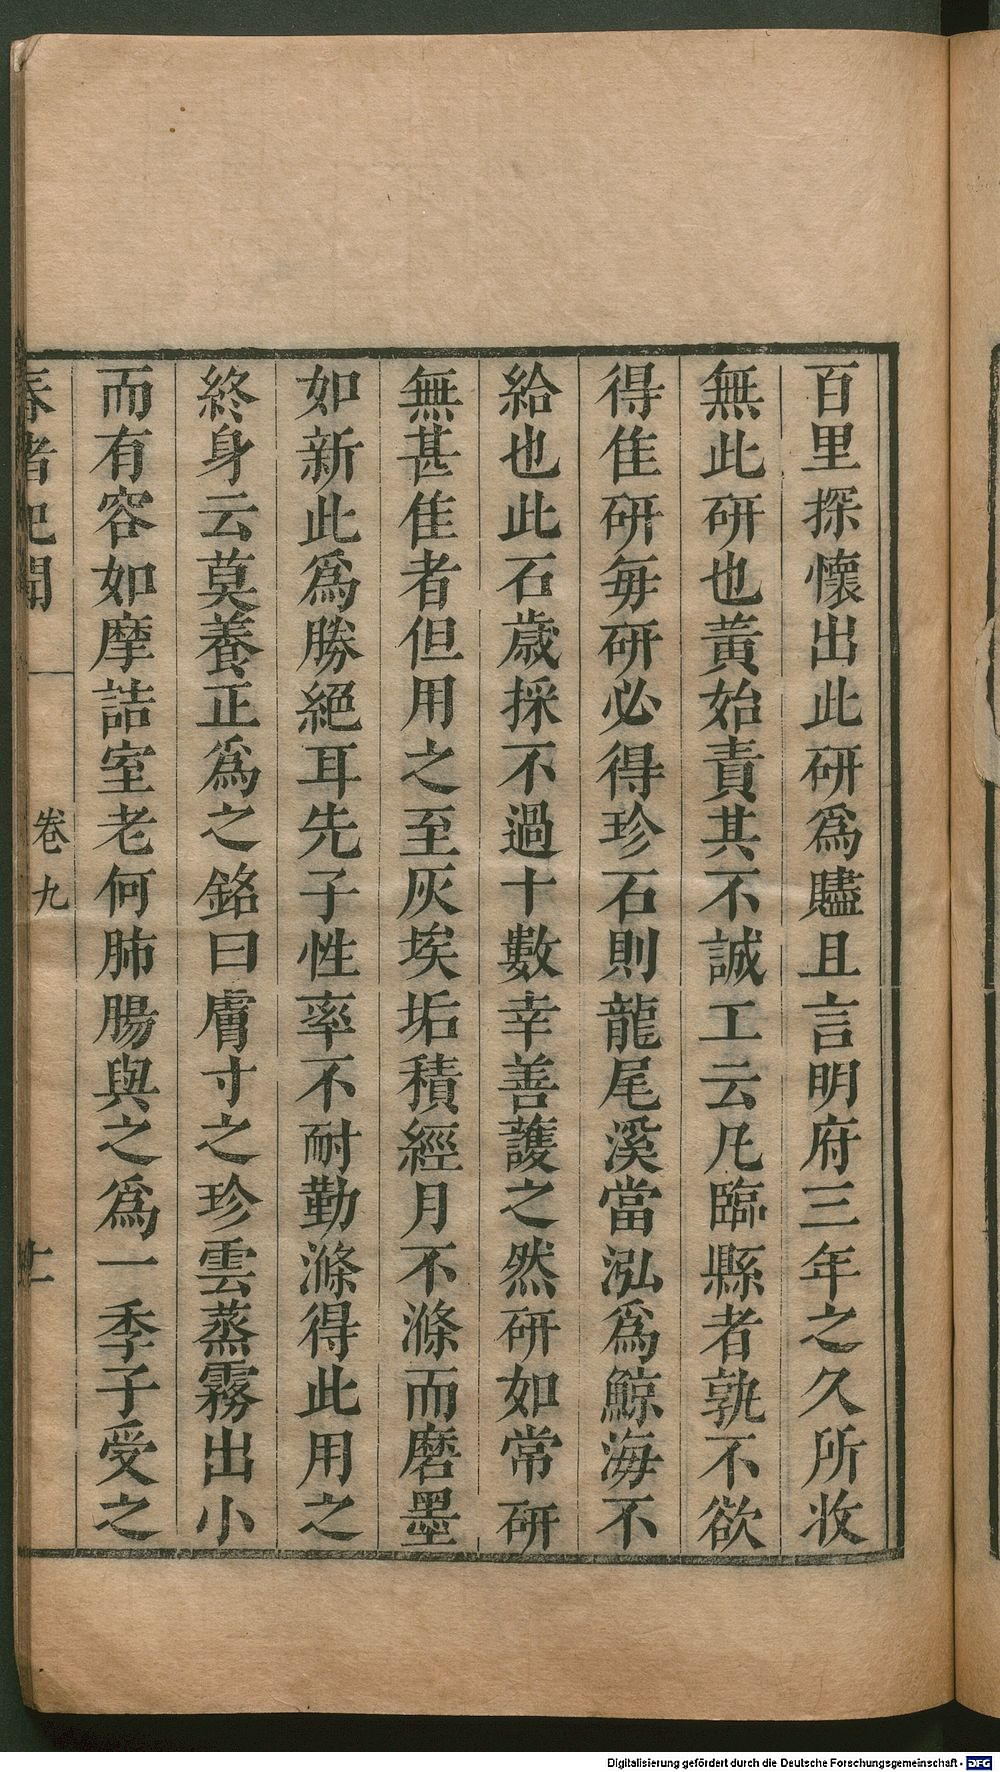 百里探懷出此研爲贐且言明府三年之久所收
無此研也黃始責其不誠工云凡臨縣者孰不欲
得隹研每研必得珍石則龍尾溪當泓爲鯨海不
給也此石歲採不過十數幸善護之然研如常研
無甚隹者但用之至灰埃垢積經月不滌而磨墨
如新此爲勝絕耳先子性率不耐勤滌得此用之
終身云莫養正爲之銘曰膚寸之珍雲蒸霧出小
而有容如摩詰室老何肺腸與之爲一季子受之
春渚紀聞 卷九
Digitalisierung gefördert durch die Deutsche Forschungsgemeinschaft - DFG